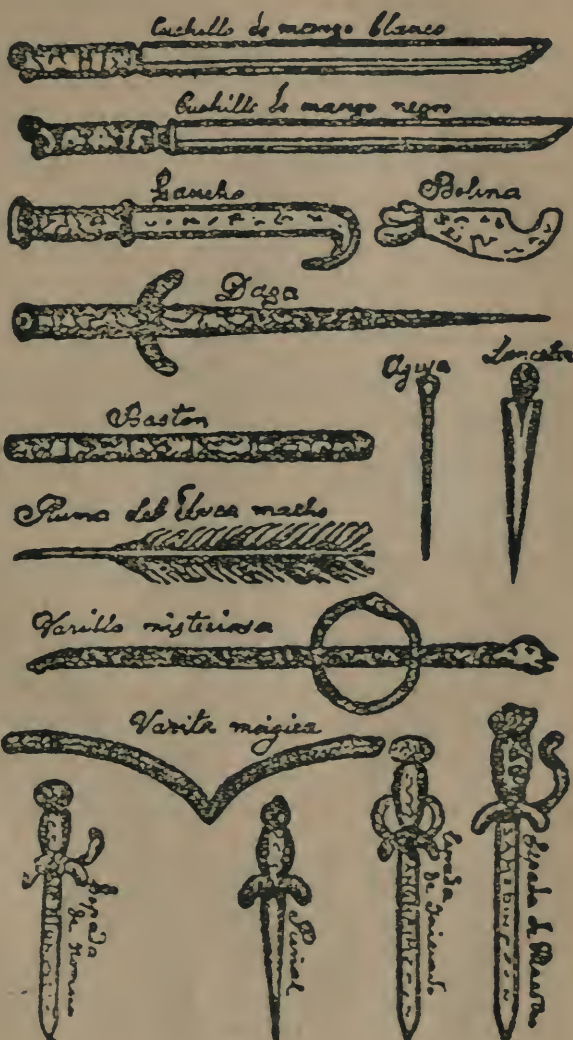 Cuchillo de mango blanco
Cuchillo de mango negro
Gancho
Bolina
Daga
Aguja
Lanceta
Baston
Pluma del macho
Varilla misteriosa
Varita mágica
Espada
de
Puñal
Espada
de Iniciado
Espada de Maestro